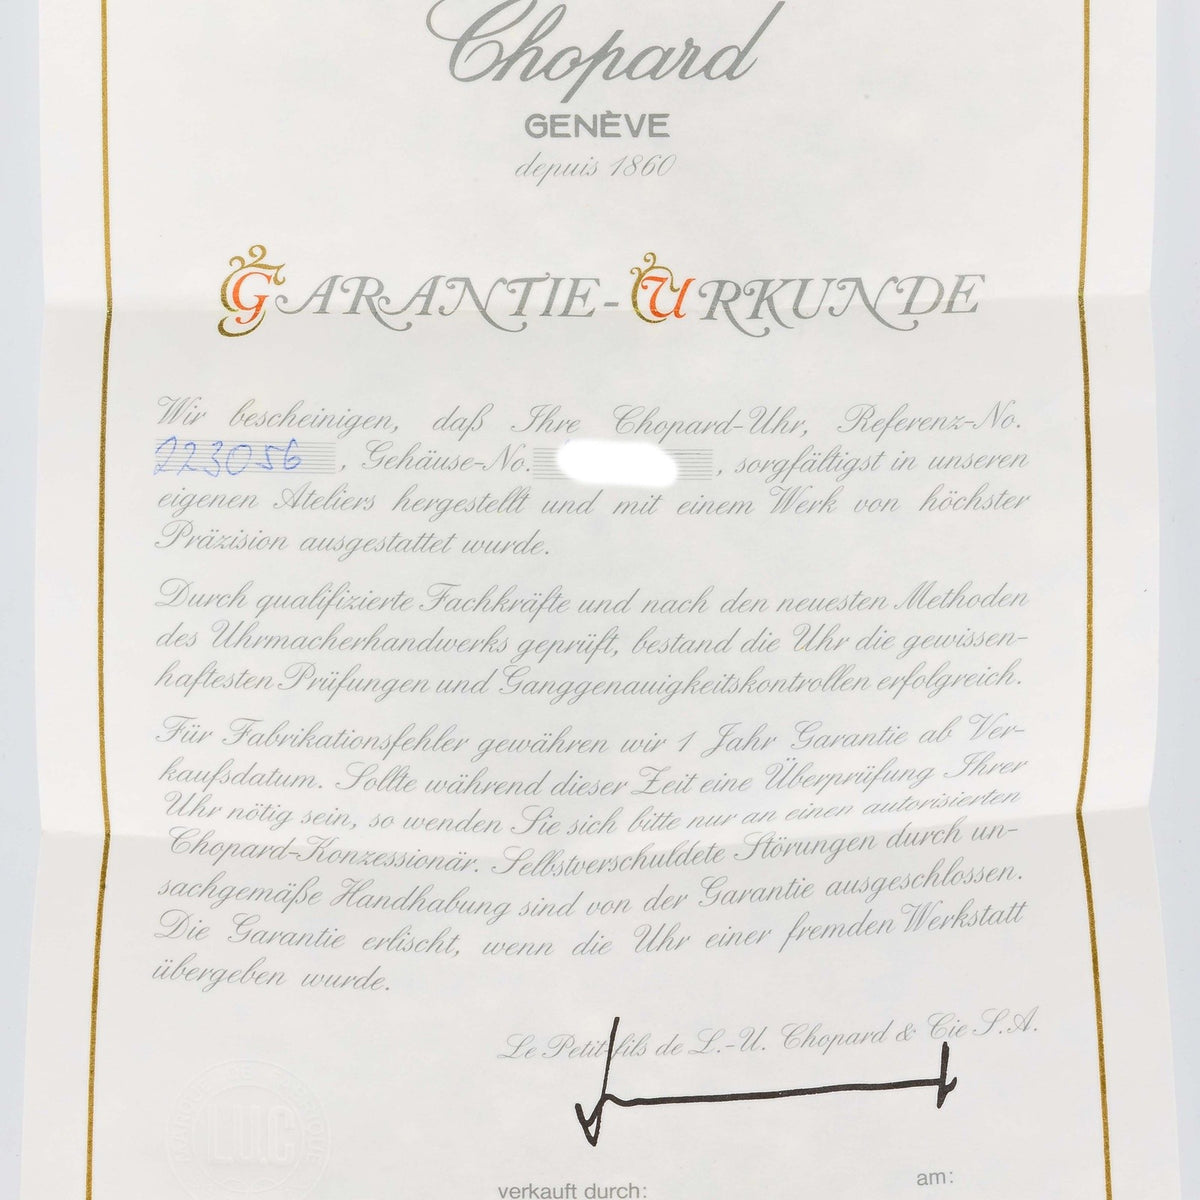 Chopard
GENÈVE
depuis 1860
GARANTIE-URKUNDE
Wir bescheinigen, daß Ihre Chopard-Uhr, Referenz-No.
223056, Gehäuse-No. , sorgfältigst in unseren
eigenen Ateliers hergestellt und mit einem Werk von höchster
Präzision ausgestattet wurde.
Durch qualifizierte Fachkräfte und nach den neuesten Methoden
des Uhrmacherhandwerks geprüft, bestand die Uhr die gewissen-
haftesten Prüfungen und Ganggenauigkeitskontrollen erfolgreich.
Für Fabrikationsfehler gewähren wir 1 Jahr Garantie ab Ver-
kaufsdatum. Sollte während dieser Zeit eine Überprüfung Ihrer
Uhr nötig sein, so wenden Sie sich bitte nur an einen autorisierten
Chopard-Konzessionär. Selbstverschuldete Störungen durch un-
sachgemäße Handhabung sind von der Garantie ausgeschlossen.
Die Garantie erlischt, wenn die Uhr einer fremden Werkstatt
übergeben wurde.
Le Petit-fils de L.-U. Chopard & Cie S.A.
L.U.C
verkauft durch:
am: